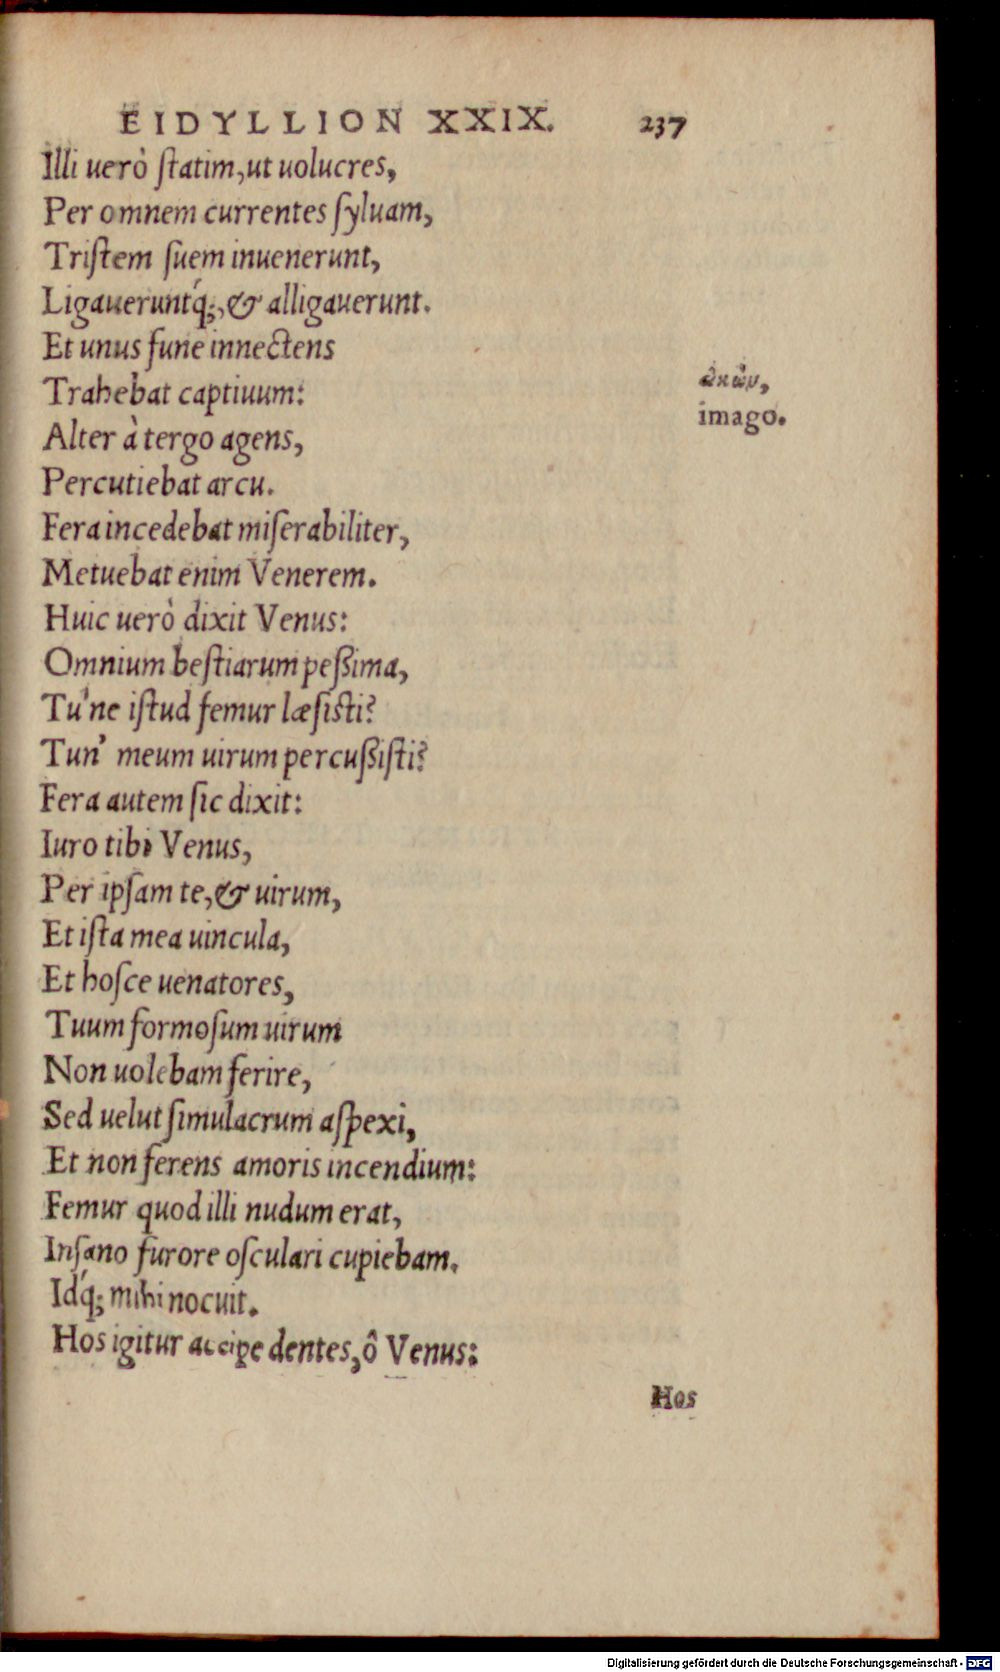 EIDYLLION XXIX. 237
Illi uerò ſtatim, ut uolucres,
Per omnem currentes ſyluam,
Triſtem ſuem inuenerunt,
Ligaueruntq́;, & alligauerunt.
Et unus fune innectens
Trahebat captiuum:
Alter à tergo agens,
Percutiebat arcu.
Fera incedebat miſerabiliter,
Metuebat enim Venerem.
Huic uerò dixit Venus:
Omnium beſtiarum peßima,
Tu'ne iſtud femur læſiſti?
Tun' meum uirum percußiſti?
Fera autem ſic dixit:
Iuro tibi Venus,
Per ipſam te, & uirum,
Et iſta mea uincula,
Et hoſce uenatores,
Tuum formoſum uirum
Non uolebam ferire,
Sed uelut ſimulacrum aſpexi,
Et non ferens amoris incendium:
Femur quod illi nudum erat,
Inſano furore oſculari cupiebam.
Idq́; mihi nocuit.
Hos igitur accipe dentes, ô Venus:
Hos
imago.
Digitalisierung gefördert durch die Deutsche Forschungsgemeinschaft - DFG